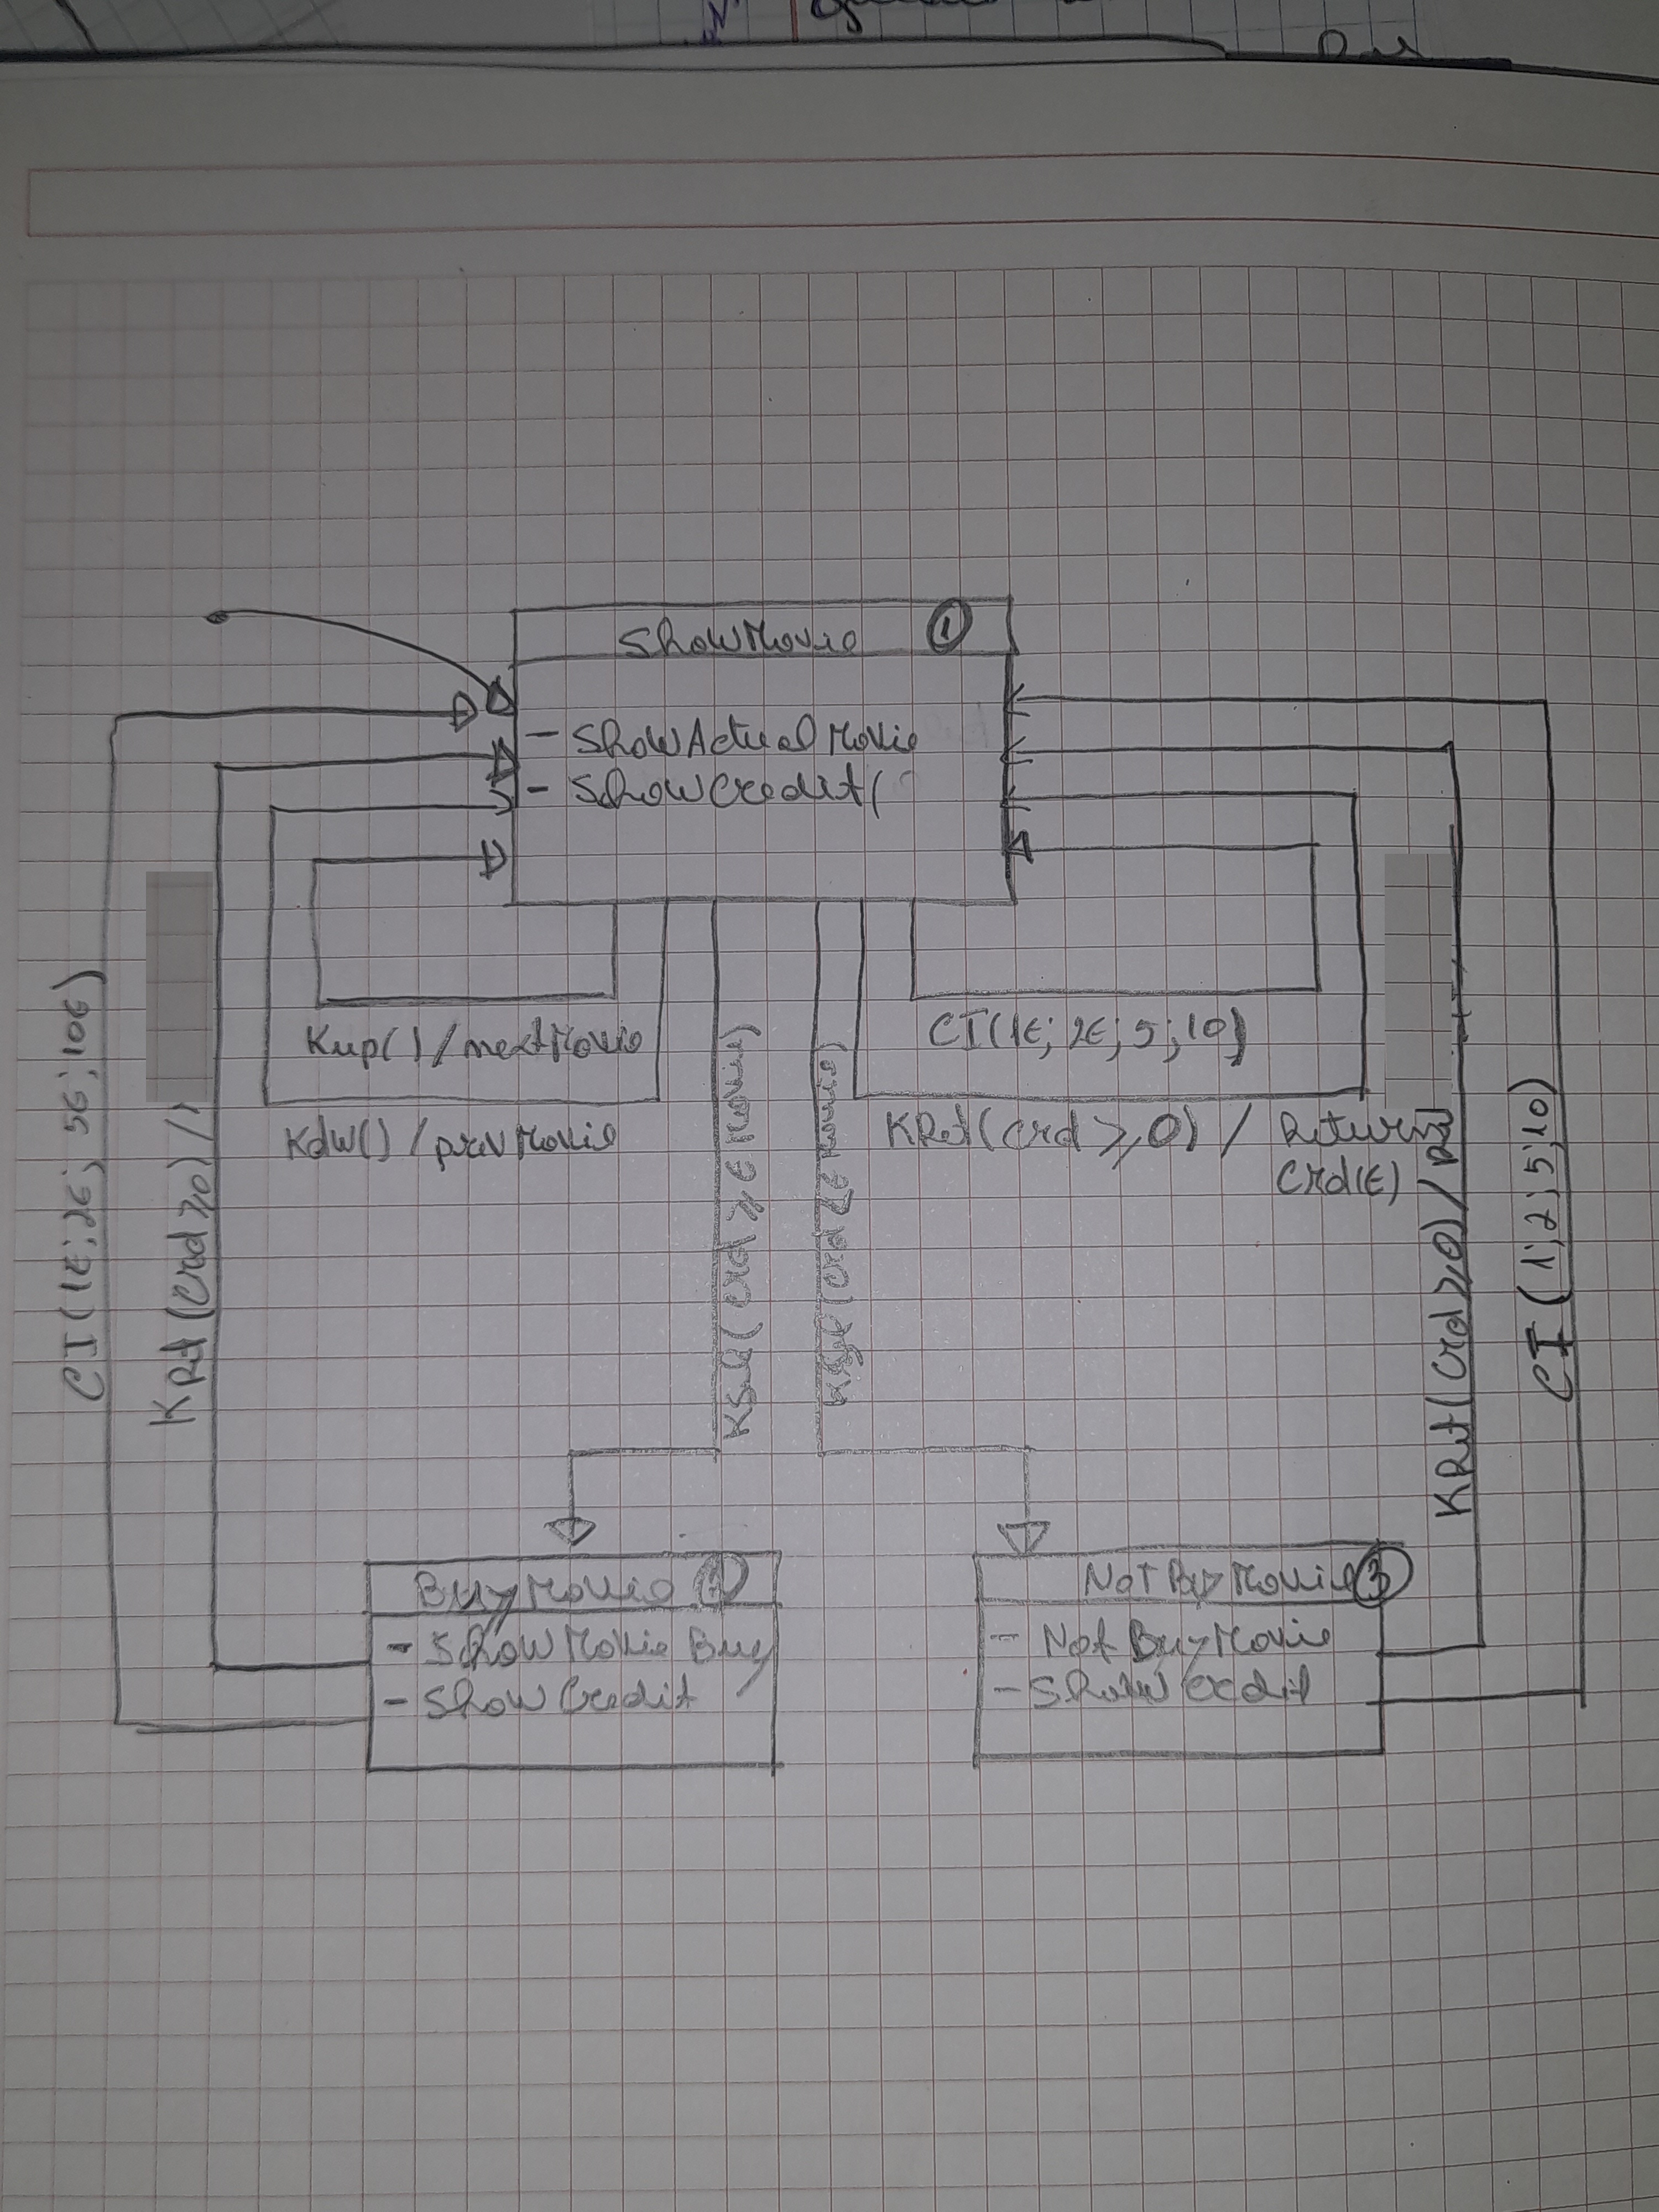 ShowMovie 1
- ShowActualMovie
- ShowCredit(
Kup() / nextMovie
Kdw() / prevMovie
CI(1€; 2€; 5; 10)
KRet(crd ≥ 0) / Return
Crd(€)
CI(1€; 2€; 5€; 10€)
KRet(Crd ≥ 0) /
KSel(Crd ≥
KRet(Crd ≥ 0) /
CI(1; 2; 5; 10)
BuyMovie
- ShowMovie Buy
- Show Credit
NotBuyMovie 3
- Not BuyMovie
- Show Credit